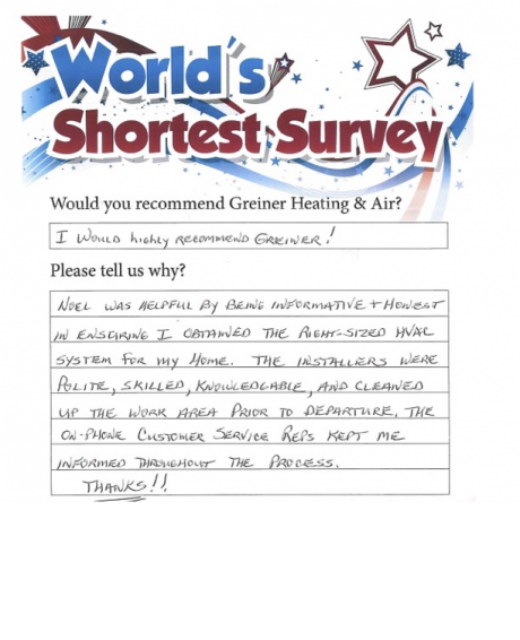 World's
Shortest Survey
Would you recommend Greiner Heating & Air?
I WOULD highly RECOMMEND GREINER!
Please tell us why?
NOEL WAS HELPFUL BY BEING INFORMATIVE + HONEST
IN ENSURING I OBTAINED THE RIGHT-SIZED HVAC
SYSTEM FOR MY HOME. THE INSTALLERS WERE
POLITE, SKILLED, KNOWLEDGABLE, AND CLEANED
UP THE WORK AREA PRIOR TO DEPARTURE. THE
ON-PHONE CUSTOMER SERVICE REPS KEPT ME
INFORMED THROUGHOUT THE PROCESS.
THANKS!!